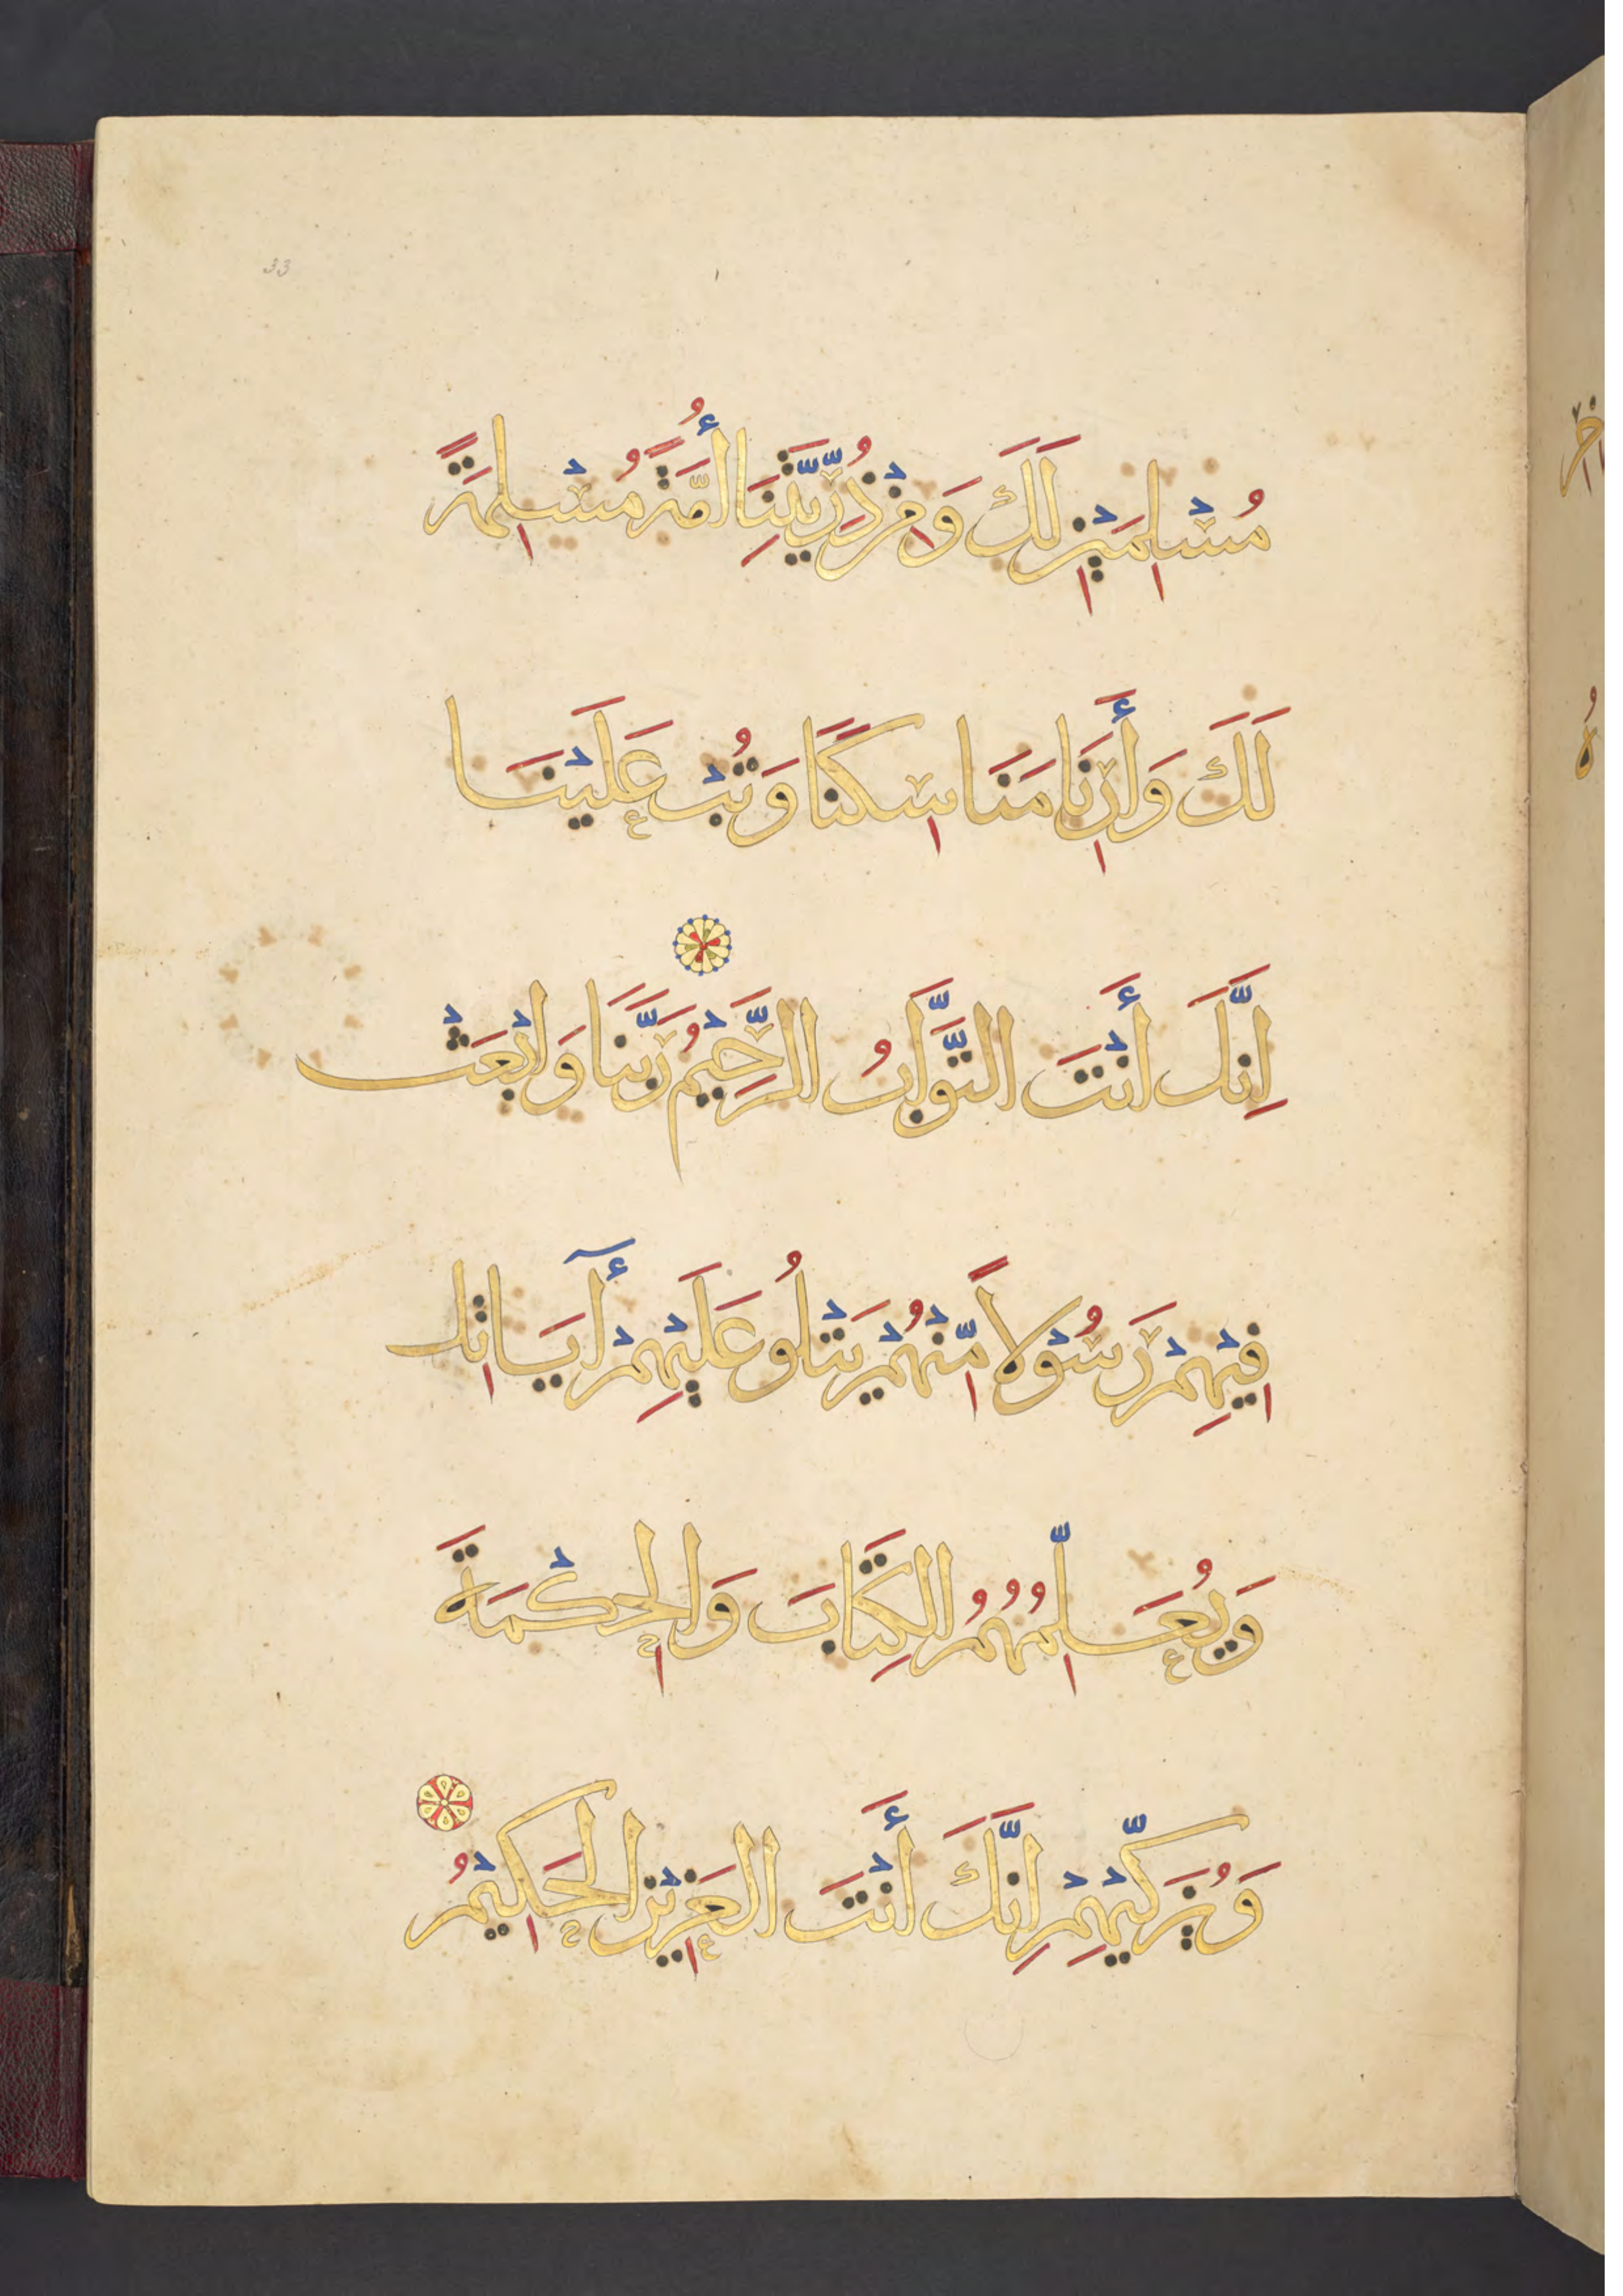 33
مُسْلِمَيْنِ لَكَ وَمِنْ ذُرِّيَّتِنَا أُمَّةً مُسْلِمَةً
لَكَ وَأَرِنَا مَنَاسِكَنَا وَتُبْ عَلَيْنَا
إِنَّكَ أَنْتَ التَّوَّابُ الرَّحِيْمُ رَبَّنَا وَابْعَثْ
فِيْهِمْ رَسُوْلاً مِّنْهُمْ يَتْلُو عَلَيْهِمْ أٓيَاتِكَ
وَيُعَلِّمُهُمُ الكِتَابَ وَالحِكْمَةَ
وَيُزَكِّيْهِمْ إِنَّكَ أَنْتَ العَزِيْزُ الحَكِيْمُ